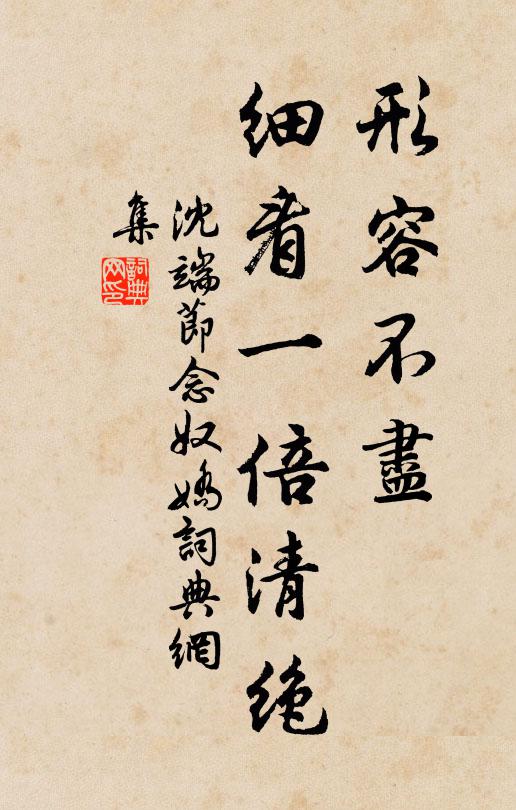 形容不盡
细看一倍清絶
沈端節念奴嬌詞典網
集
詞典
网印